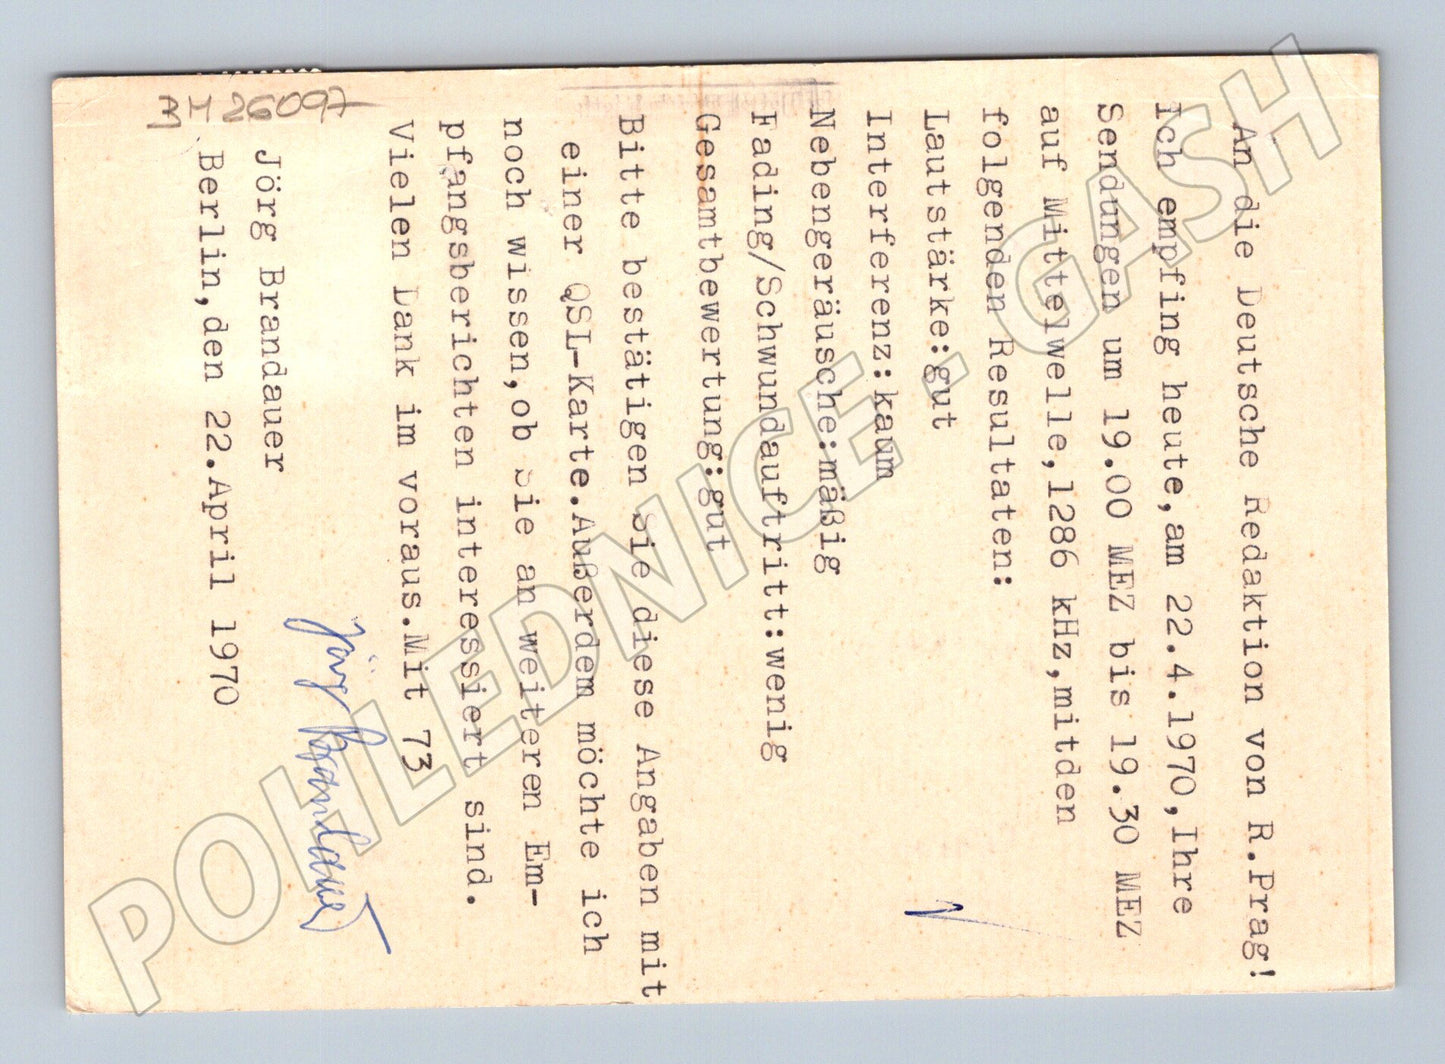 An die Deutsche Redaktion von R.Prag!
Ich empfing heute,am 22.4.1970,Ihre
Sendungen um 19.00 MEZ bis 19.30 MEZ
auf Mittelwelle,1286 kHz,mitden
folgenden Resultaten:
Lautstärke:gut
Interferenz:kaum
Nebengeräusche:mäßig
Fading/Schwundauftritt:wenig
Gesamtbewertung:gut
Bitte bestätigen Sie diese Angaben mit
einer QSL-Karte.Außerdem möchte ich
noch wissen,ob Sie an weiteren Em-
pfangsberichten interessiert sind.
Vielen Dank im voraus.Mit 73
Jörg Brandauer
Jörg Brandauer
Berlin,den 22.April 1970
BH 26097
POHLEDNICE - GASH